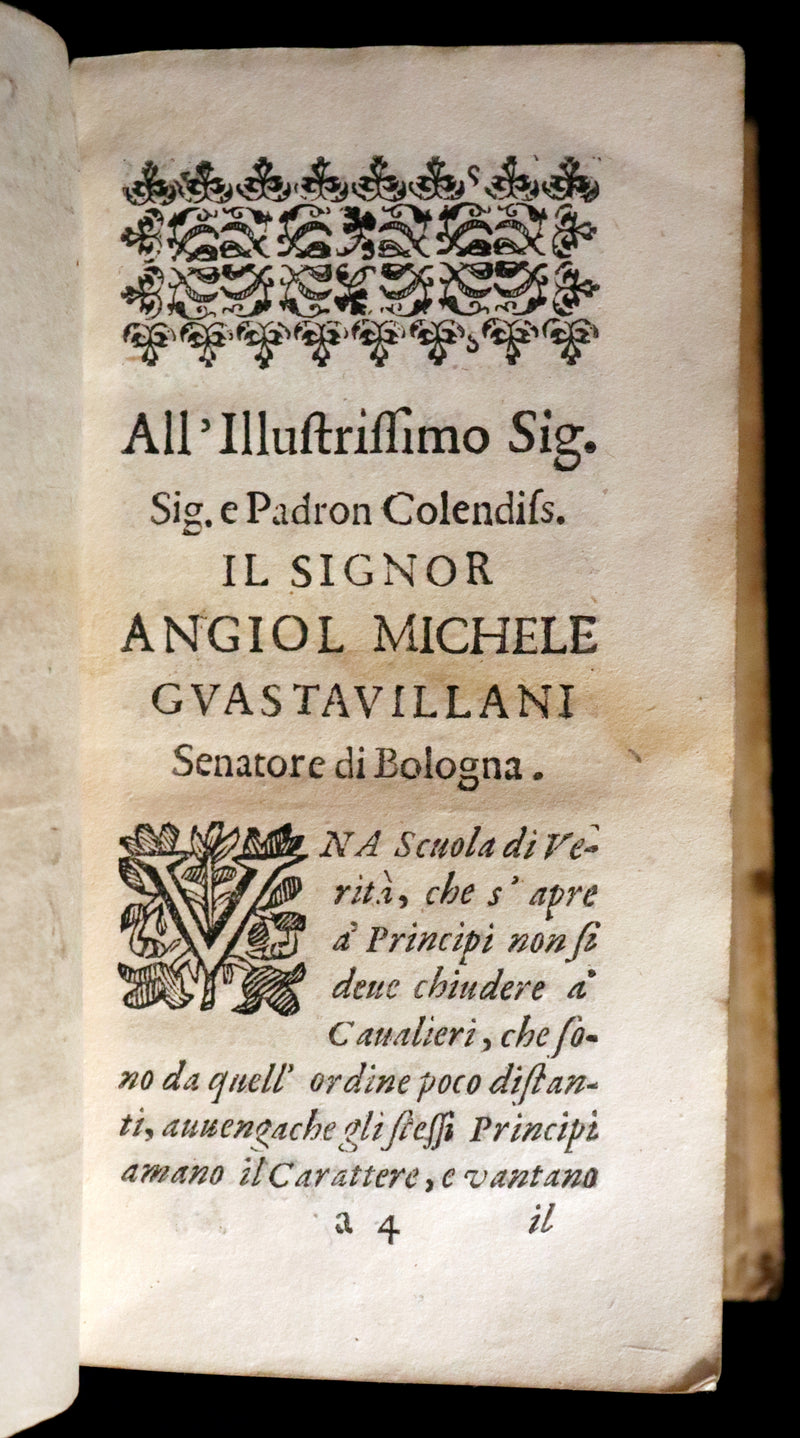 All' Illuſtriſſimo Sig.
Sig. e Padron Colendiſs.
IL SIGNOR
ANGIOL MICHELE
GVASTAVILLANI
Senatore di Bologna.
VNA Scuola di Ve-
rità, che s' apre
a' Principi non ſi
deue chiudere a'
Caualieri, che ſo-
no da quell' ordine poco diſtan-
ti, auuengache gli ſteſſi Principi
amano il Carattere, e vantano
a 4 il